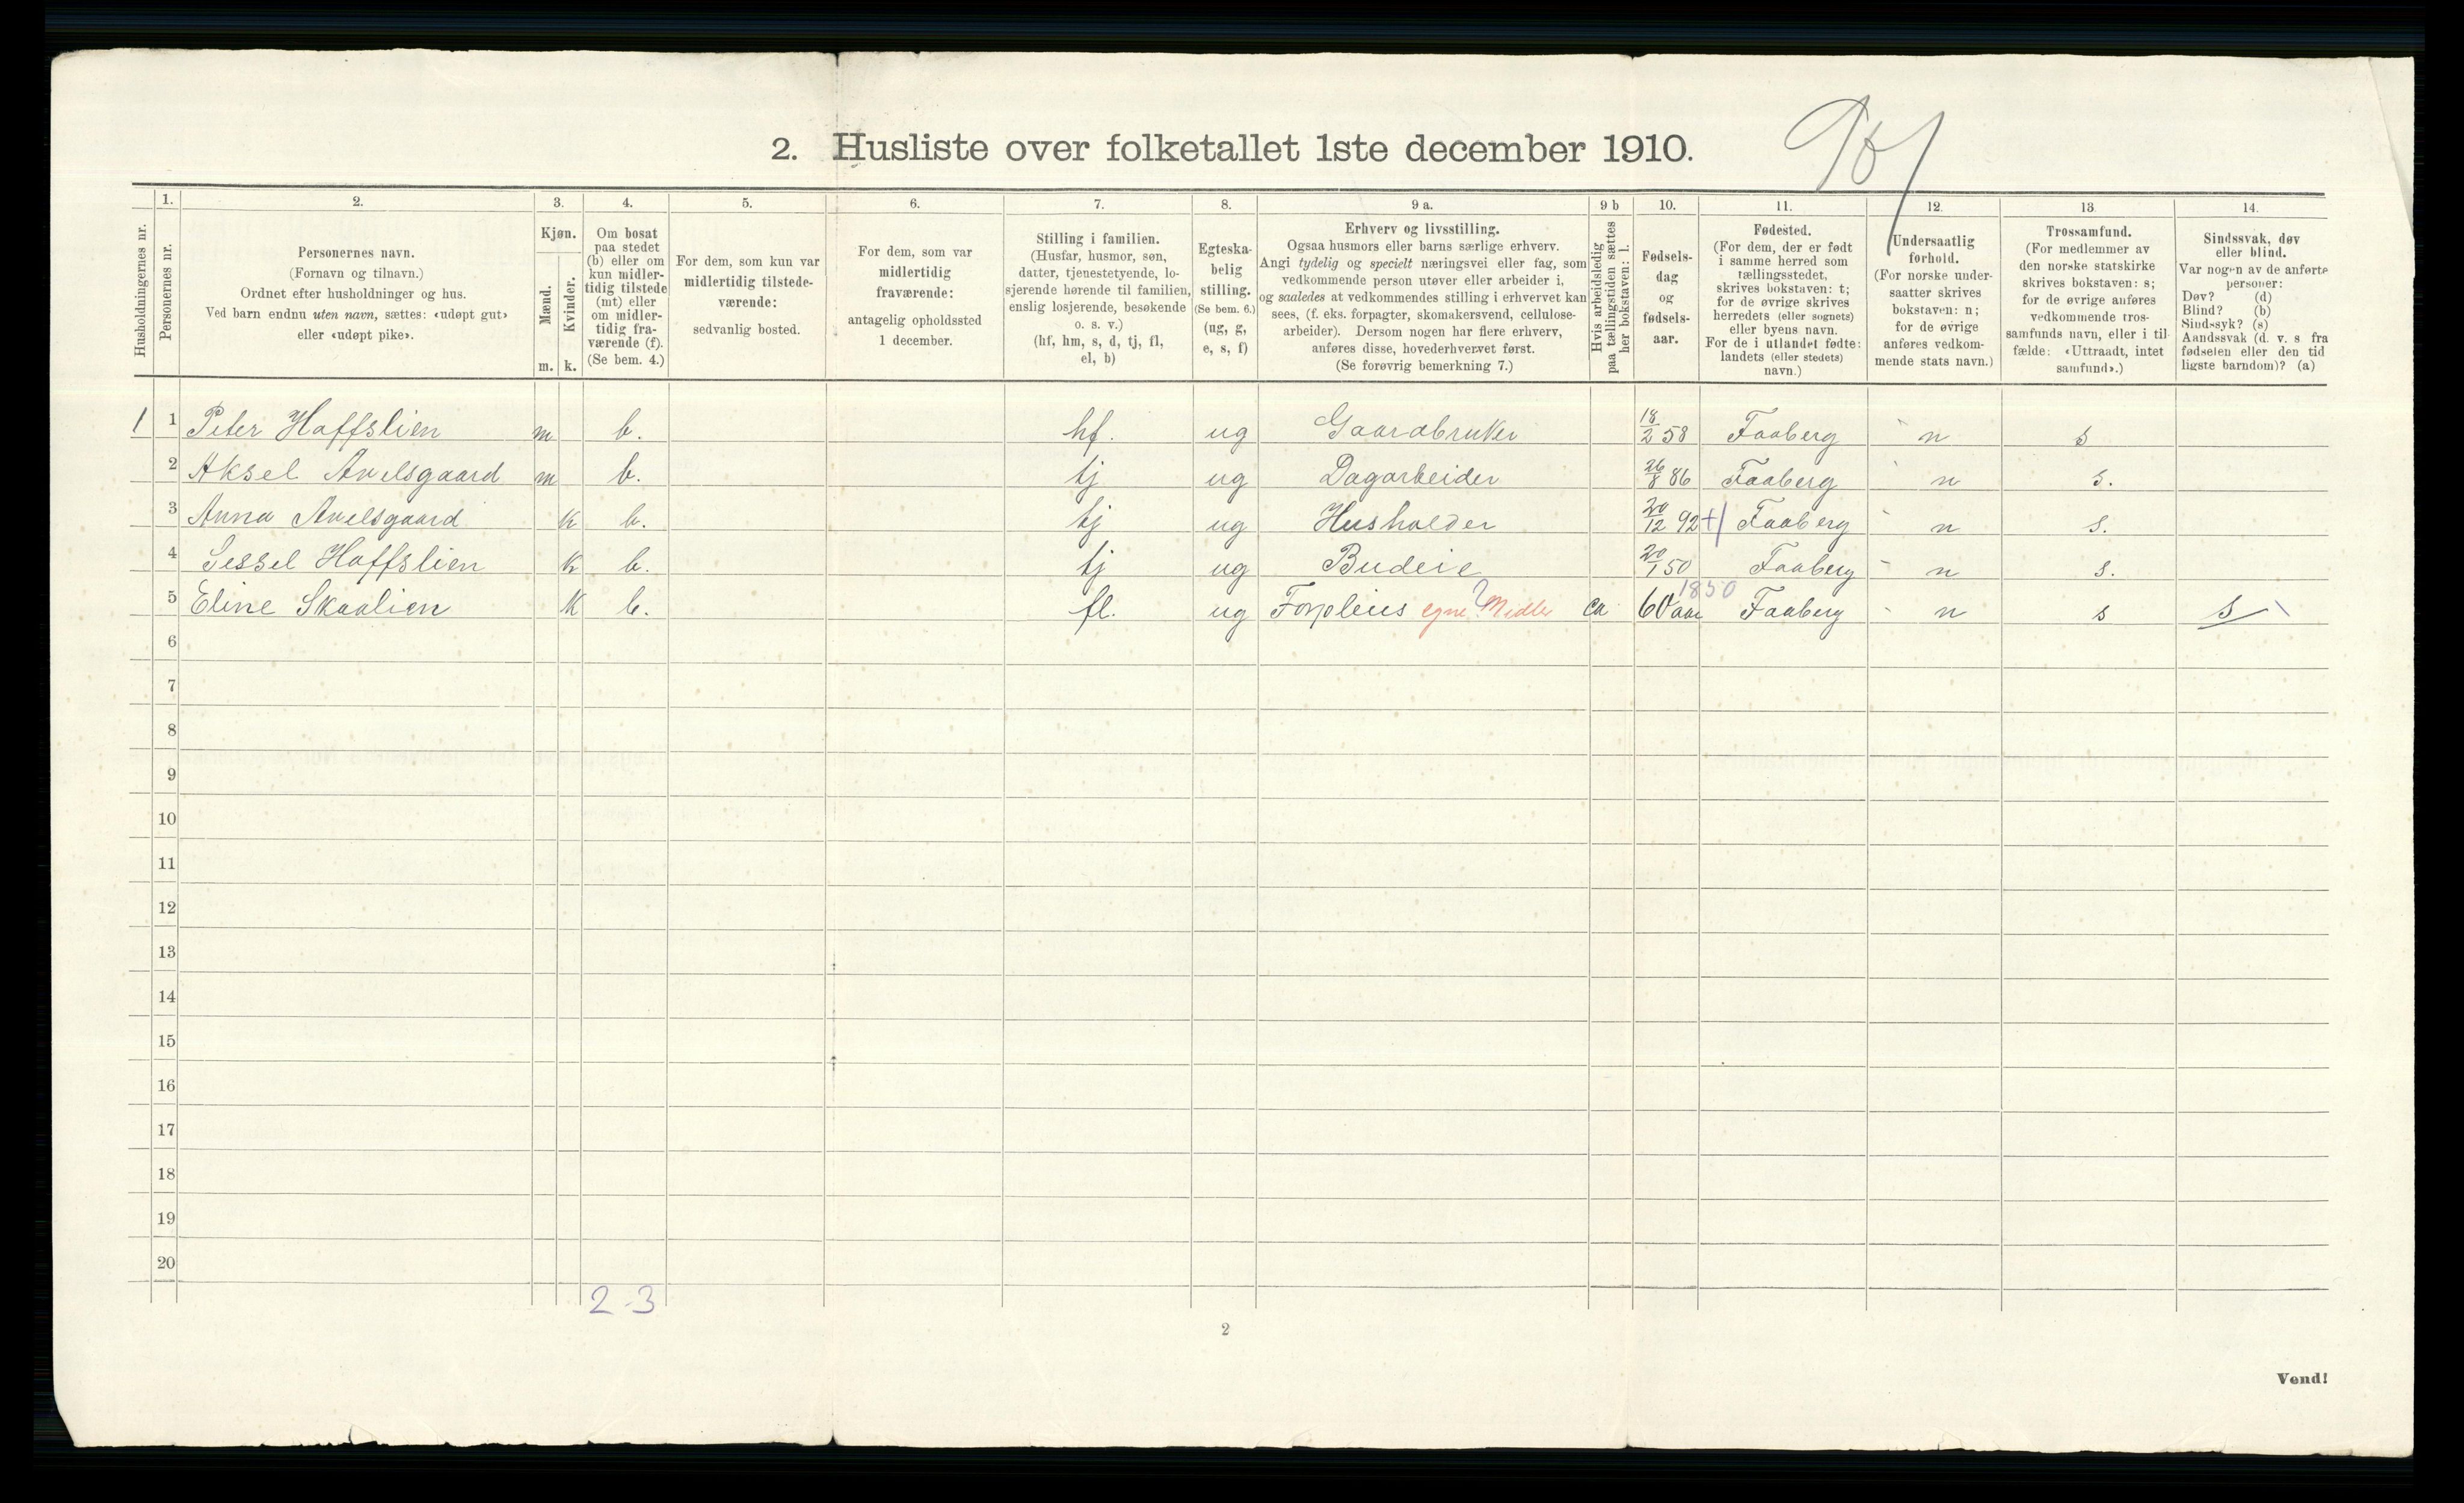 2. Husliste over folketallet 1ste december 1910.
1. 2. 3. 4. 5. 6. 7. 8. 9 a. 9 b 10. 11. 12. 13. 14.
Husholdningernes nr.
Personernes nr.
Personernes navn.
(Fornavn og tilnavn.)
Ordnet efter husholdninger og hus.
Ved barn endnu uten navn, sættes: «udøpt gut»
eller «udøpt pike».
Kjøn.
Mænd.
Kvinder.
m. k.
Om bosat
paa stedet
(b) eller om
kun midler-
tidig tilstede
(mt) eller
om midler-
tidig fra-
værende (f).
(Se bem. 4.)
For dem, som kun var
midlertidig tilstede-
værende:
sedvanlig bosted.
For dem, som var
midlertidig
fraværende:
antagelig opholdssted
1 december.
Stilling i familien.
(Husfar, husmor, søn,
datter, tjenestetyende, lo-
sjerende hørende til familien,
enslig losjerende, besøkende
o. s. v.)
(hf, hm, s, d, tj, fl,
el, b)
Egteska-
belig
stilling.
(Se bem. 6.)
(ug, g,
e, s, f)
Erhverv og livsstilling.
Ogsaa husmors eller barns særlige erhverv.
Angi tydelig og specielt næringsvei eller fag, som
vedkommende person utøver eller arbeider i,
og saaledes at vedkommendes stilling i erhvervet kan
sees, (f. eks. forpagter, skomakersvend, cellulose-
arbeider). Dersom nogen har flere erhverv,
anføres disse, hovederhvervet først.
(Se forøvrig bemerkning 7.)
Hvis arbeidsledig
paa tællingstiden sættes
her bokstaven: l.
Fødsels-
dag
og
fødsels-
aar.
Fødested.
(For dem, der er født
i samme herred som
tællingsstedet,
skrives bokstaven: t;
for de øvrige skrives
herredets (eller sognets)
eller byens navn.
For de i utlandet fødte:
landets (eller stedets)
navn.)
Undersaatlig
forhold.
(For norske under-
saatter skrives
bokstaven: n;
for de øvrige
anføres vedkom-
mende stats navn.)
Trossamfund.
(For medlemmer av
den norske statskirke
skrives bokstaven: s;
for de øvrige anføres
vedkommende tros-
samfunds navn, eller i til-
fælde: «Uttraadt, intet
samfund».)
Sindssvak, døv
eller blind.
Var nogen av de anførte
personer:
Døv? (d)
Blind? (b)
Sindssyk? (s)
Aandssvak (d. v. s fra
fødselen eller den tid
ligste barndom)? (a)
1 1 Peter Haffslien m b. hf. ug Gaardbruker 18/2 58 Faaberg n s
2 Aksel Avelsgaard m b. tj ug Dagarbeider 26/8 86 Faaberg n s.
3 Anna Avelsgaard k b. tj ug Husholder 20/12 92 t/ Faaberg n s.
4 Sessel Haffslien k b. tj ug Budeie 20/1 50 Faaberg n s.
1850
5 Eline Skaalien K b. fl. ug Forpleies egne ? Midler ca 60 aar Faaberg n s s
6
7
8
9
10
11
12
13
14
15
16
17
18
19
20
2-3
2
Vend!